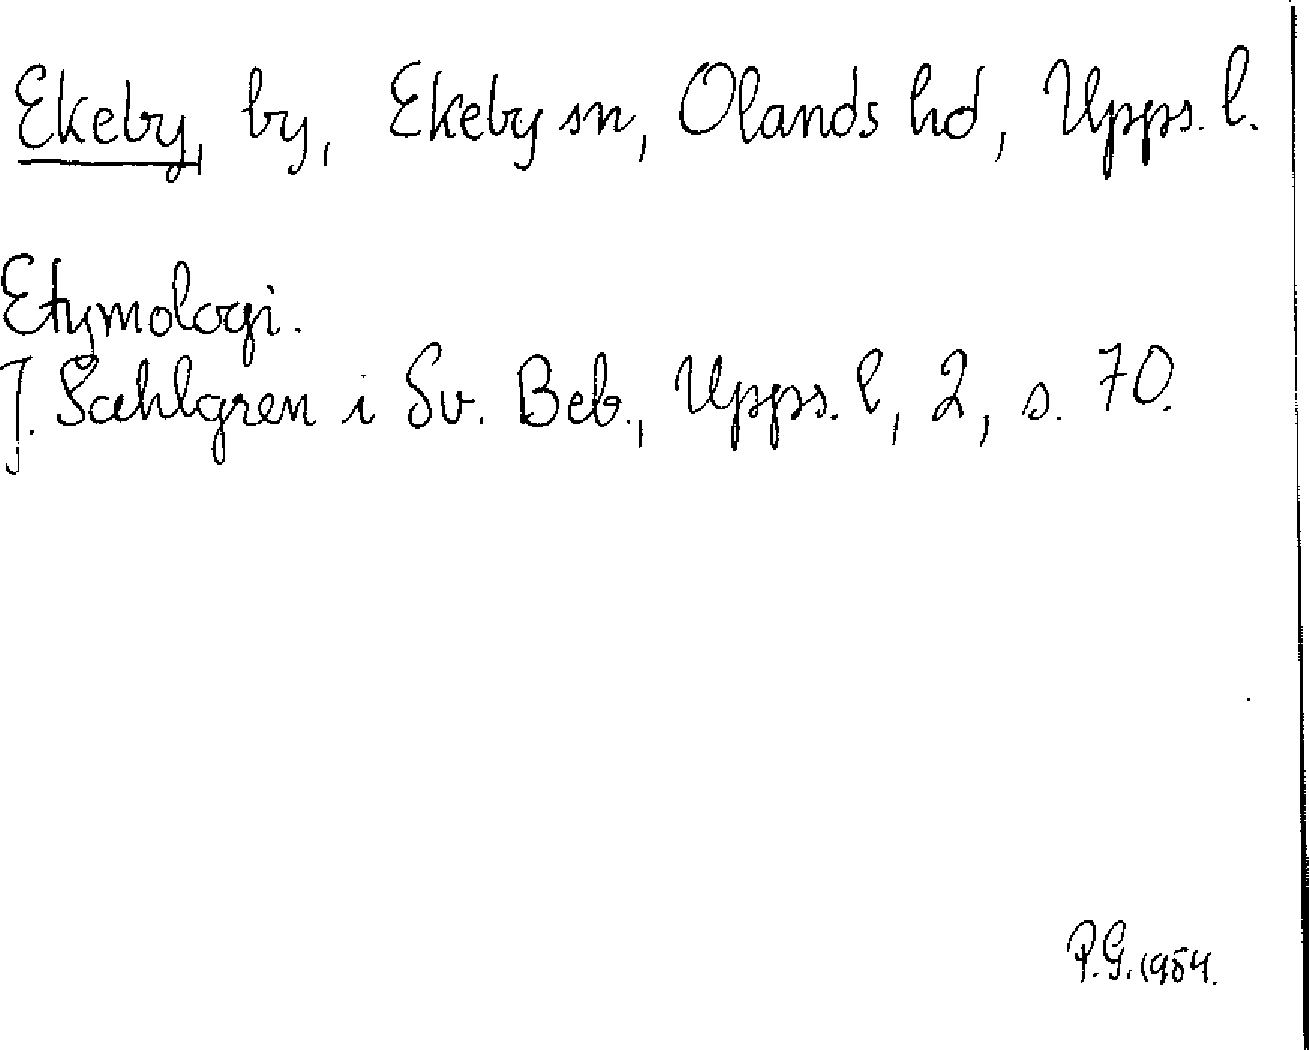 Ekeby, by, Ekeby sn, Olands hd, Upps. l.
Etymologi.
J. Sahlgren i Sv. Beb., Upps. l, 2, s. 70.
P.G. 1954.